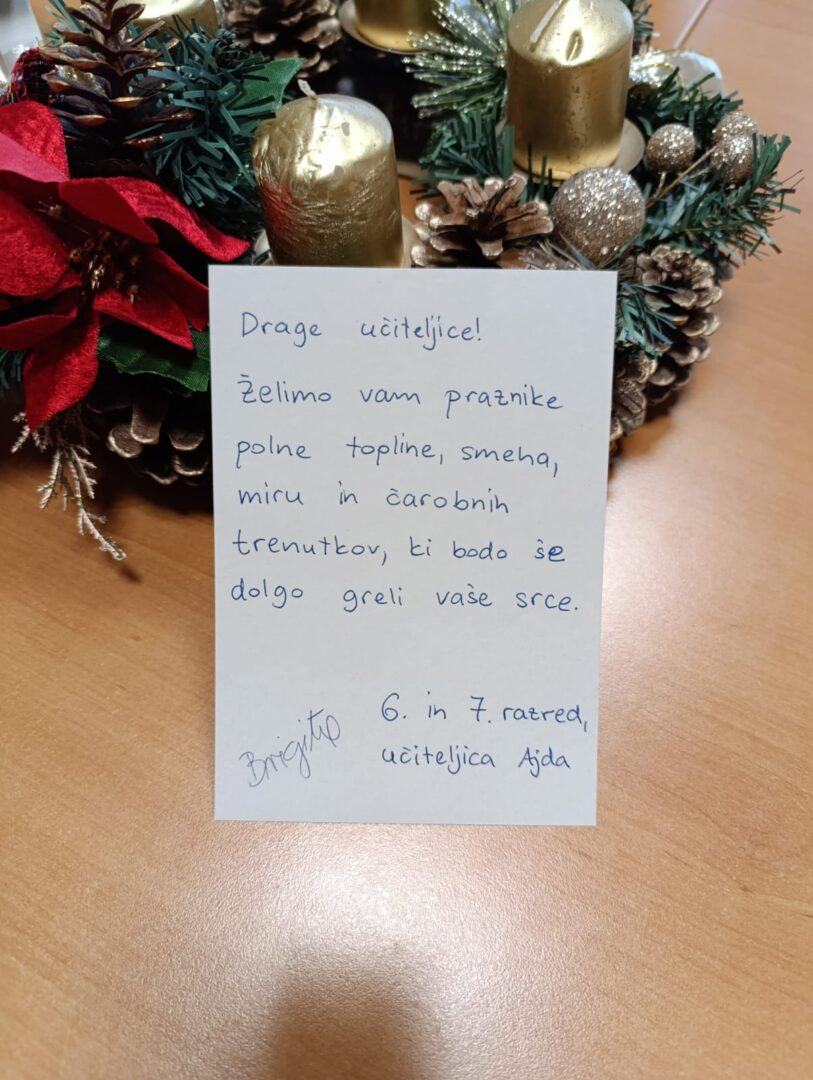 Drage učiteljice!
Želimo vam praznike
polne topline, smeha,
miru in čarobnih
trenutkov, ki bodo še
dolgo greli vaše srce.
6. in 7. razred,
učiteljica Ajda